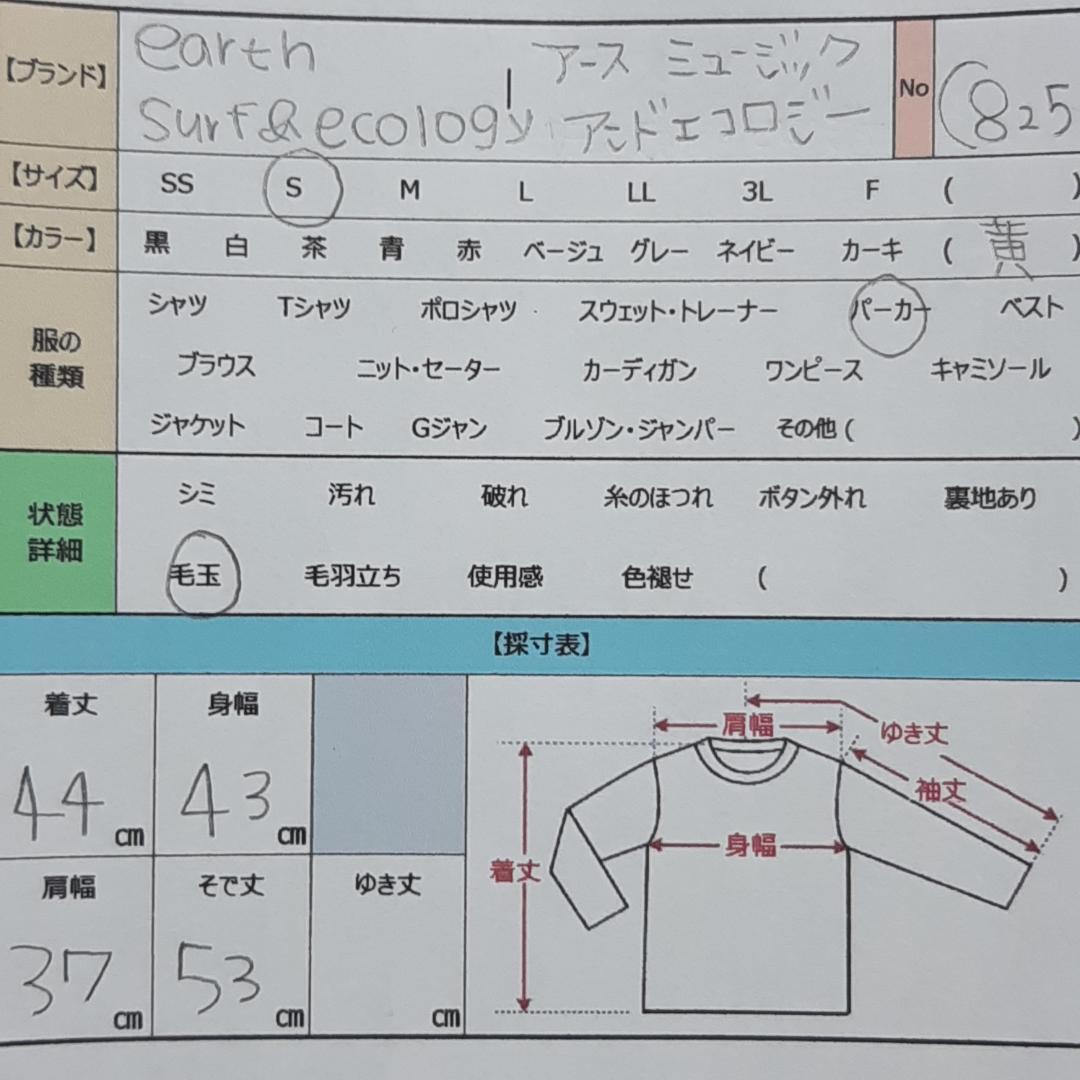 【ブランド】 earth アース ミュージック No (825
surf&ecology アンドエコロジー
【サイズ】 SS S M L LL 3L F ( )
【カラー】 黒 白 茶 青 赤 ベージュ グレー ネイビー カーキ ( 黄 )
服の種類
シャツ Tシャツ ポロシャツ スウェット・トレーナー パーカー ベスト
ブラウス ニット・セーター カーディガン ワンピース キャミソール
ジャケット コート Gジャン ブルゾン・ジャンパー その他 ( )
状態詳細
シミ 汚れ 破れ 糸のほつれ ボタン外れ 裏地あり
毛玉 毛羽立ち 使用感 色褪せ ( )
【採寸表】
着丈 身幅
44 cm 43 cm
肩幅 そで丈 ゆき丈
37 cm 53 cm cm
肩幅 ゆき丈
袖丈
着丈 身幅